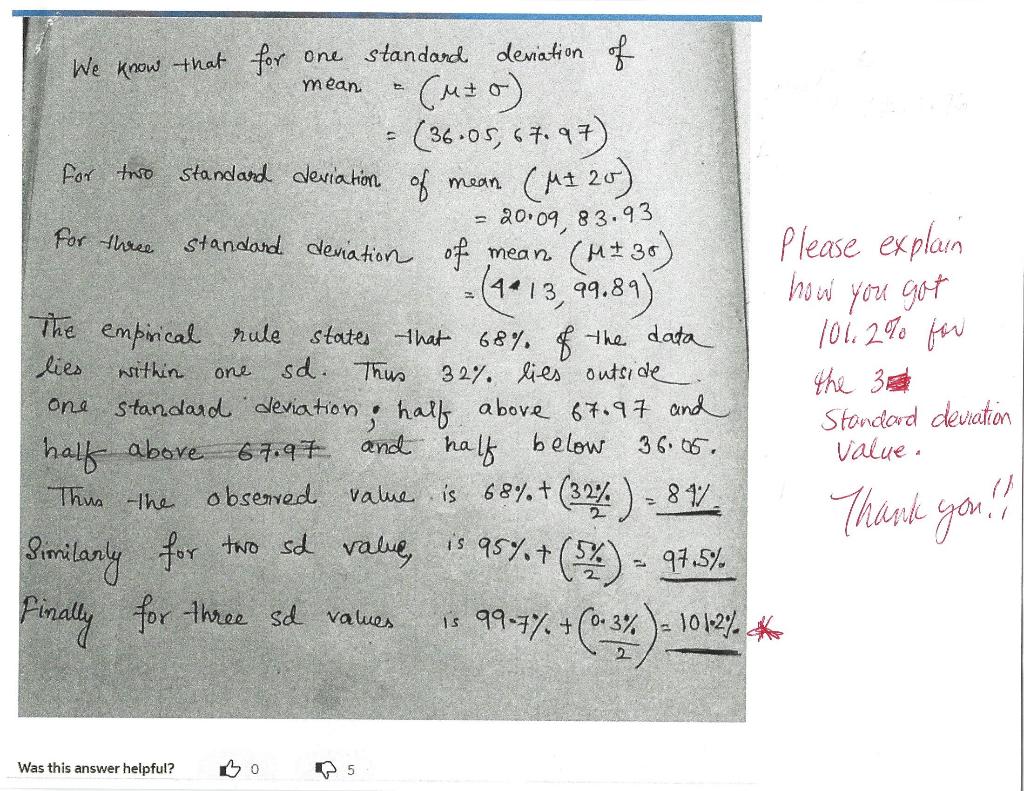 We know that for one standard deviation of
mean = (μ ± σ)
= (36.05, 67.97)
For two standard deviation of mean (μ ± 2σ)
= 20.09, 83.93
For three standard deviation of mean (μ ± 3σ)
= (4.13, 99.89)
The empirical rule states that 68% of the data
lies within one sd. Thus 32% lies outside
one standard deviation, half above 67.97 and
half above 67.97 and half below 36.05.
Thus the observed value is 68% + (32%/2) = 84%
Similarly for two sd value, is 95% + (5%/2) = 97.5%
Finally for three sd values is 99.7% + (0.3%/2) = 101.2% *
Please explain
how you got
101.2% for
the 3
Standard deviation
value.
Thank you!!
Was this answer helpful? 0 5